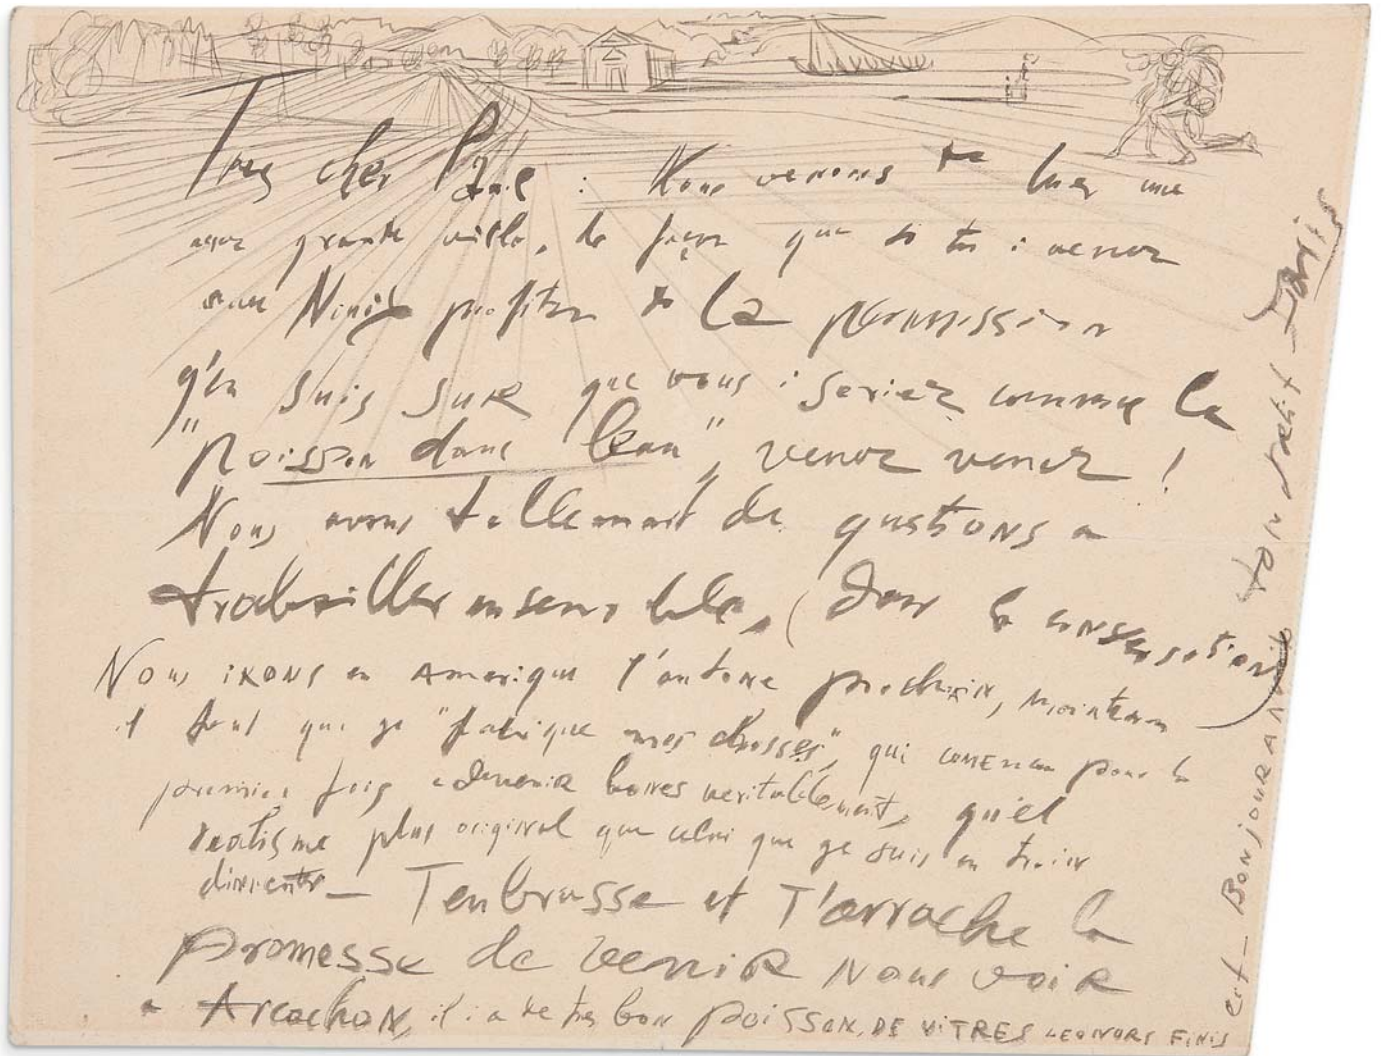 Tres cher Paul : Nous venons de luer une
asez grande ville, de façon que si tu i venez
avec Nuich profiter de la permission
g'en suis sure que vous i seriez comme le
"poisson dans l'eau", venez venez !
Nous avons tellement de questions a
trabailler ensemble, (dans la conversation)
Nous irons en Amerique l'autone prochain, maintenan
il faut que ge "fabrique mes chosses", qui comencen pour la
premiere fois a devenir bonnes veritablement, quel
realisme plus original que celui que ge suis en train
d'inventer — T'enbrasse et T'arrache la
promesse de venir nous voir
a Arcachon, il i a de tres bon poisson, DE VITRES LEONORS FINIS
ect — BONJOUR A NUCH ton petit Dalis